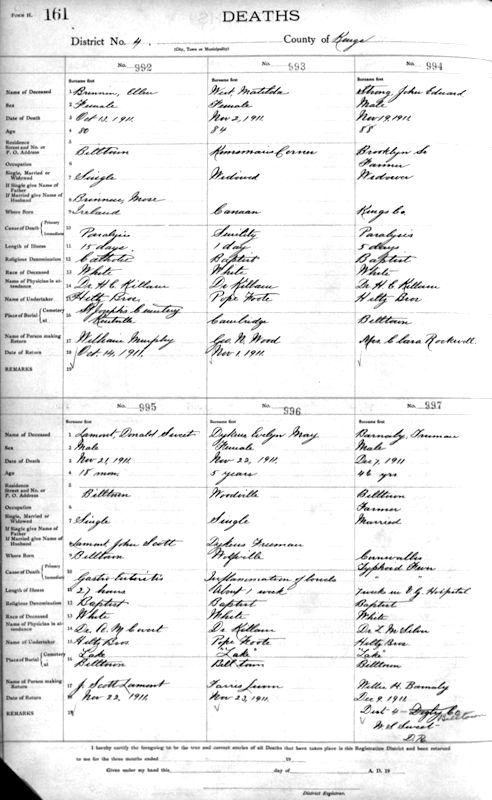 FORM H. 161 DEATHS
District No. 4. County of Kings
(City, Town or Municipality)
No. 992 No. 993 No. 994
Surname first Surname first Surname first
Name of Deceased 1 Brennen, Ellen West Matilda Strong, John Edward
Sex 2 Female Female Male
Date of Death 3 Oct 13, 1911. Nov 2, 1911. Nov 19, 1911
Age 4 80 84 88
Residence
Street and No. or P. O. Address 5 Billtown Corner Brooklyn St
Occupation 6 Farmer
Single, Married or Widowed 7 Single Widowed Widower
If Single give Name of Father
If Married give Name of Husband 8 Mose
Where Born 9 Ireland Canaan Kings Co
Cause of Death { Primary Immediate 10 Paralysis Senility Paralysis
Length of Illness 11 15 days. 1 day 5 days
Religious Denomination 12 Catholic Baptist Baptist
Race of Deceased 13 White White White
Name of Physician in attendance 14 Dr H C Killam Dr Killam Dr H C Killam
Name of Undertaker 15 Hilty Bros. Pope Foote Hilty Bros
Place of Burial { Cemetery at 16 St Joseph's Cemetery Kentville Cambridge Billtown
Name of Person making Return 17 William Murphy Geo. W. Wood Mrs. Clara Rockwell
Date of Return 18 Oct. 14, 1911. Nov 1, 1911.
REMARKS 19
No. 995 No. 996 No. 997
Surname first Surname first Surname first
Name of Deceased 1 Lamont, Donald Sweet Dykens Evelyn May Barnaby, Truman
Sex 2 Male Female Male
Date of Death 3 Nov 21, 1911 Nov 22, 1911. Dec 7, 1911
Age 4 18 mon. 5 years 46 yrs
Residence
Street and No. or P. O. Address 5 Billtown Woodville Billtown
Occupation 6 Farmer
Single, Married or Widowed 7 Single Single Married
If Single give Name of Father
If Married give Name of Husband 8 Lamont John Scott Dykens Freeman
Where Born 9 Billtown Wolfville Cornwallis
Cause of Death { Primary Immediate 10 Gastro Enteritis Inflammation of bowels Typhoid Fever
Length of Illness 11 27 hours About 1 week 7 weeks in V. G. Hospital
Religious Denomination 12 Baptist Baptist Baptist
Race of Deceased 13 White White White
Name of Physician in attendance 14 Dr. Covert Dr Killam Dr
Name of Undertaker 15 Hilty Bros. Pope Foote Hilty Bros
Place of Burial { Cemetery at 16 Lake Billtown "Lake" Billtown "Lake" Billtown
Name of Person making Return 17 J. Scott Lamont Willie H. Barnaby
Date of Return 18 Nov 22, 1911. Nov 23, 1911. Dec 9, 1911
REMARKS 19 Dist 4 - Digby Co Billtown
W. S. Sweet
D. R.
I hereby certify the foregoing to be the true and correct entries of all Deaths that have taken place in this Registration District and been returned
to me for the three months ended 19
Given under my hand this day of A. D. 19
District Registrar.